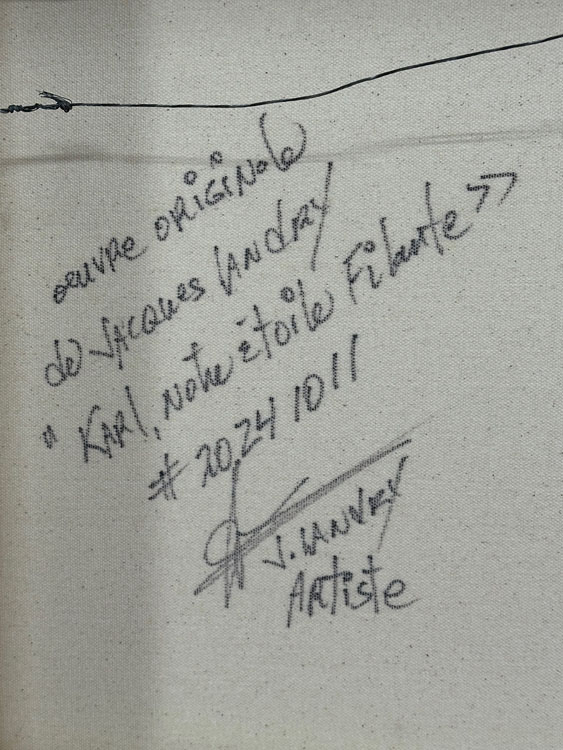 œuvre originale
de Jacques Landry
" Karl, notre étoile Filante >>
# 20241011
J. Landry
Artiste